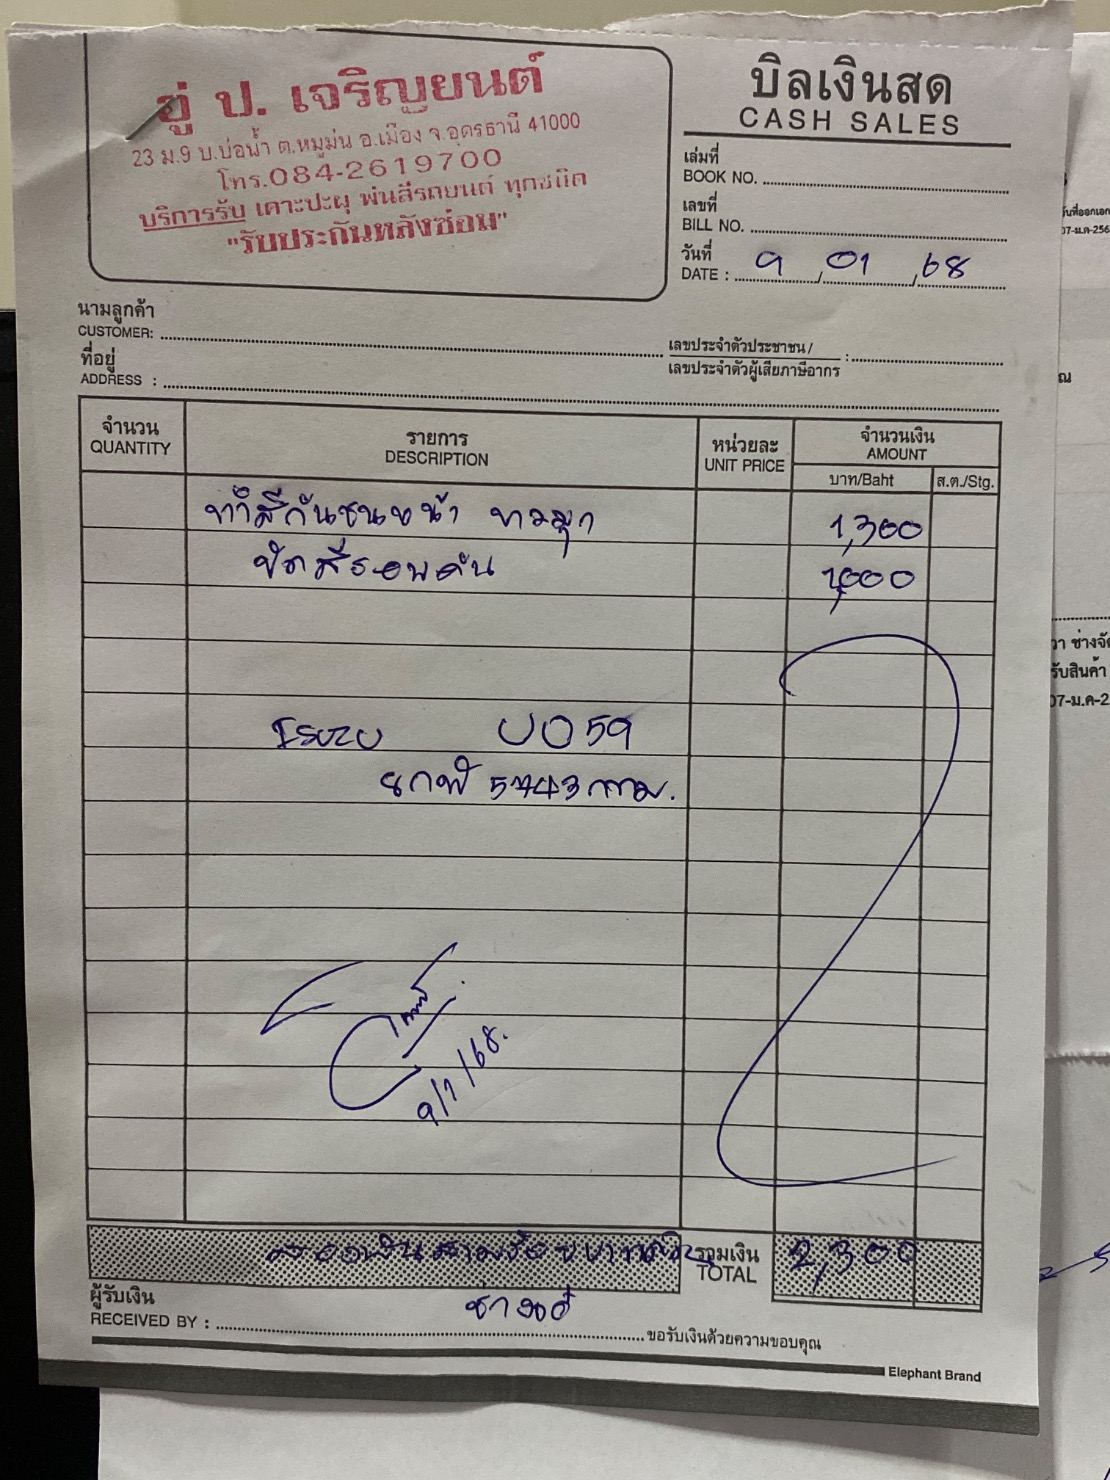 อู่ ป. เจริญยนต์
23 ม.9 บ.บ่อน้ำ ต.หมูม่น อ.เมือง จ.อุดรธานี 41000
โทร.084-2619700
บริการรับ เคาะปะผุ พ่นสีรถยนต์ ทุกชนิด
"รับประกันหลังซ่อม"
บิลเงินสด
CASH SALES
เล่มที่
BOOK NO.
เลขที่
BILL NO.
วันที่
DATE : 9 01 68
นามลูกค้า
CUSTOMER:
ที่อยู่
ADDRESS :
เลขประจำตัวประชาชน/
เลขประจำตัวผู้เสียภาษีอากร :
จำนวน รายการ หน่วยละ จำนวนเงิน
QUANTITY DESCRIPTION UNIT PRICE AMOUNT
บาท/Baht ส.ต./Stg.
ทำสีกันชนหน้า ขาวมุก 1,300
ขัดสีรอบคัน 1,000
ISUZU
5743 กทม.
9/1/68.
สองพันสามร้อยบาทถ้วน รวมเงิน 2,300
TOTAL
ผู้รับเงิน
RECEIVED BY : ขอรับเงินด้วยความขอบคุณ
Elephant Brand
วันที่ออกเอก
07-ม.ค-256
วา ช่างจัด
รับสินค้า
07-ม.ค-2